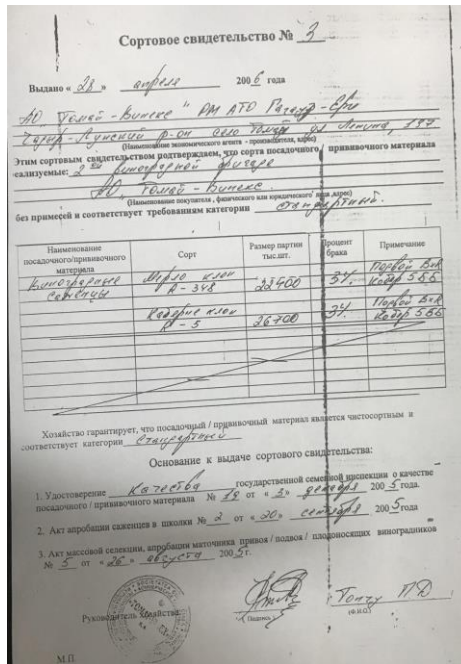 Сортовое свидетельство № 3
Выдано « 28 » апреля 2006 года
АО "Томай-Винекс" РМ АТО Гагауз-Ери
Чадыр-Лунгский р-он село Томай ул Ленина,
(Наименование экономического агента - производителя, адрес)
Этим сортовым свидетельством подтверждаем, что сорта посадочного / прививочного материала
реализуемые: 2ой виноградной бригаде
АО, Томай-Винекс.
(Наименование покупателя, физического или юридического лица, адрес)
без примесей и соответствует требованиям категории стандартный.
Наименование посадочного/прививочного материала Сорт Размер партии тыс.шт. Процент брака Примечание
Виноградные саженцы Мерло клон R-348 22400 3% Подвой ВхR Кобер 5ББ
Каберне клон R-5 26700 3% Подвой ВхR Кобер 5ББ
Хозяйство гарантирует, что посадочный / прививочный материал является чистосортным и
соответствует категории Стандартный
Основание к выдаче сортового свидетельства:
1. Удостоверение Качества государственной семенной инспекции о качестве
посадочного / прививочного материала № 19 от « 3 » декабря 2005 года.
2. Акт апробации саженцев в школки № 2 от « 20 » сентября 2005 года
3. Акт массовой селекции, апробации маточника привоя / подвоя / плодоносящих виноградников
№ 5 от « 26 » августа 2005г.
Руководитель хозяйства:
( Подпись )
Топчу ПД
(Ф.И.О.)
М.П.